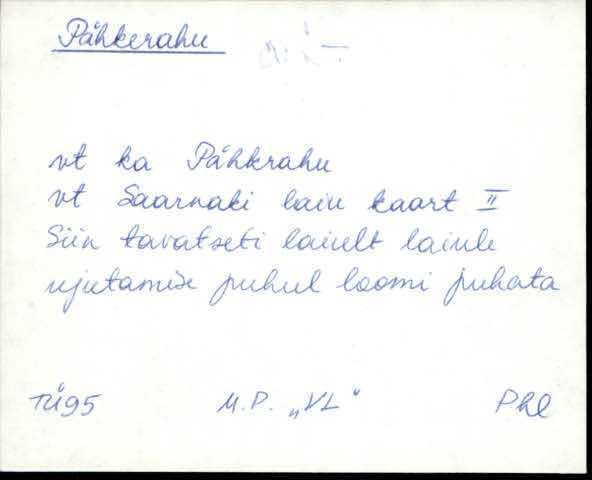 Pähkerahu
vt ka Pähkrahu
vt Saarnaki laiu kaart II
Siin tavatseti laiult laiule
ujutamise puhul loomi puhata
TÜ95 M.P. „VL" Phl